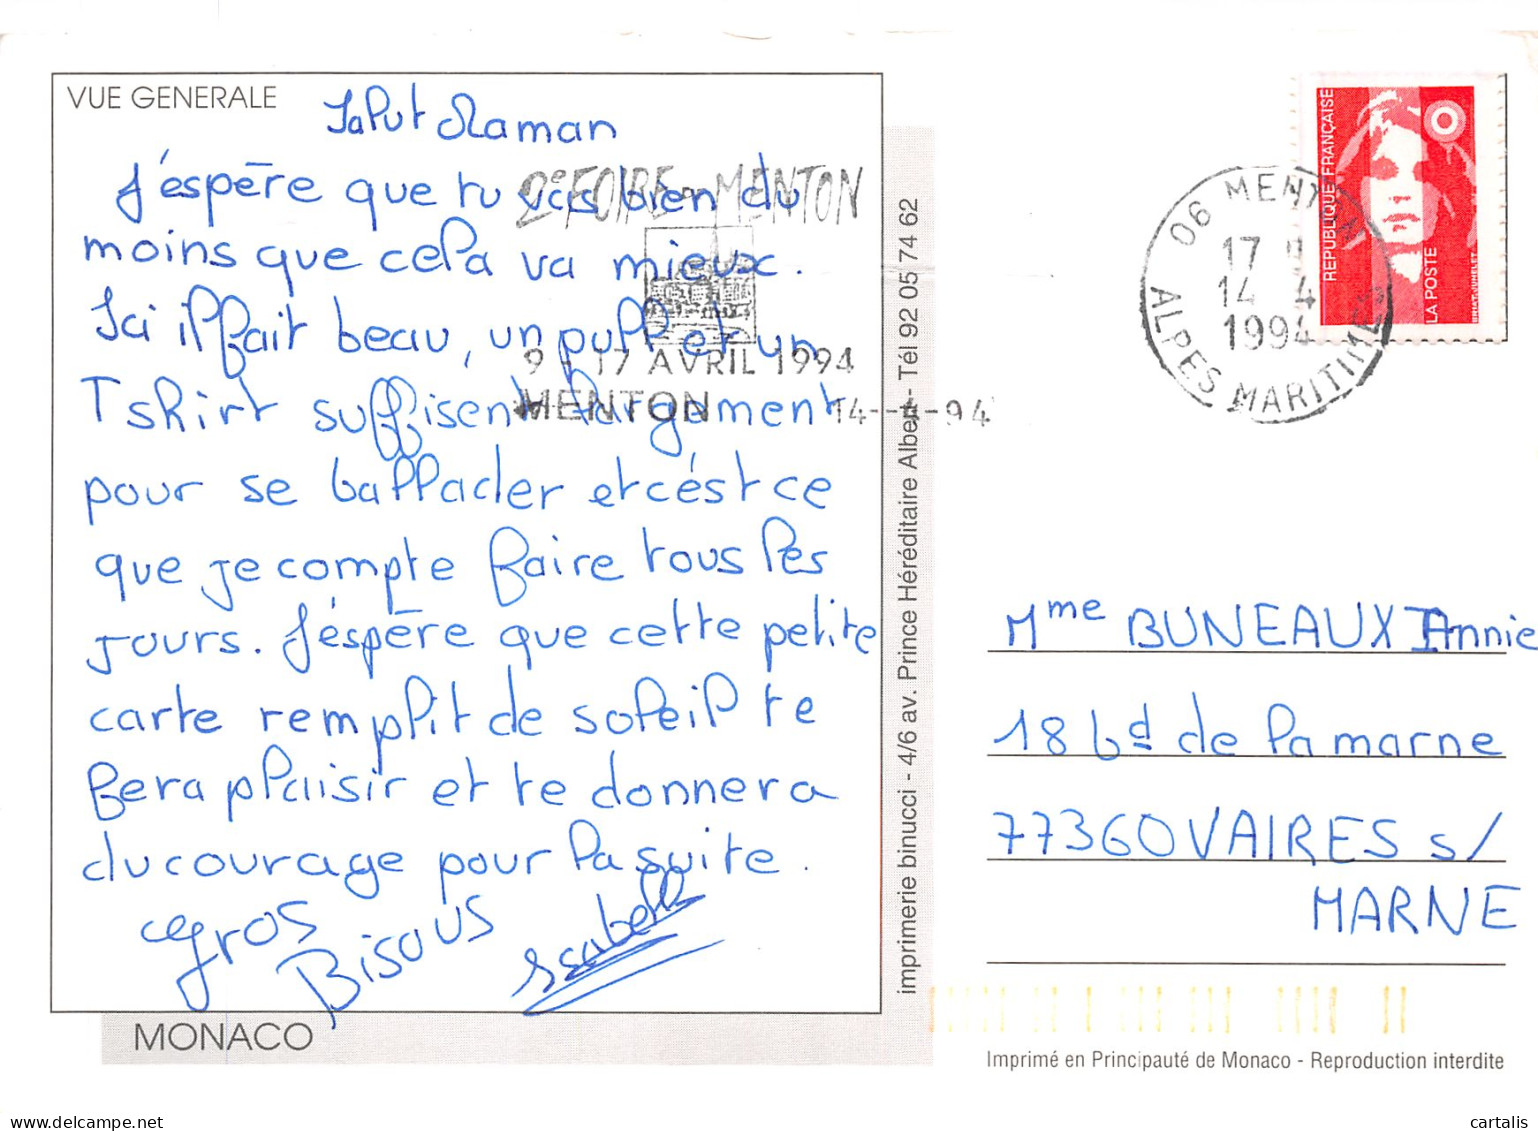 VUE GENERALE
Salut Maman
J'espère que tu vas bien du
moins que cela va mieux.
Ici il fait beau, un pull et un
T shirt suffisent largement
pour se ballader et c'est ce
que je compte faire tous les
jours. J'espère que cette petite
carte remplit de soleil te
fera plaisir et te donnera
du courage pour la suite.
gros
Bisous
Isabelle
MONACO
2e FOIRE DE MENTON
9 - 17 AVRIL 1994
MENTON
14--4-94
imprimerie binucci - 4/6 av. Prince Héréditaire Albert - Tél 92 05 74 62
REPUBLIQUE FRANÇAISE
LA POSTE
BRIAT-JUMELET
06 MENTON
17 H
14 4
1994
ALPES MARITIMES
Mme BUNEAUX Annie
18 bd de la marne
77360 VAIRES s/
MARNE
Imprimé en Principauté de Monaco - Reproduction interdite
cartalis
delcampe.net